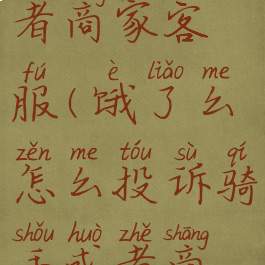 者商家客
fú è liǎo me
服(饿了么
zěn me tóu sù qí
怎么投诉骑
shǒu huò zhě shāng
手或者商